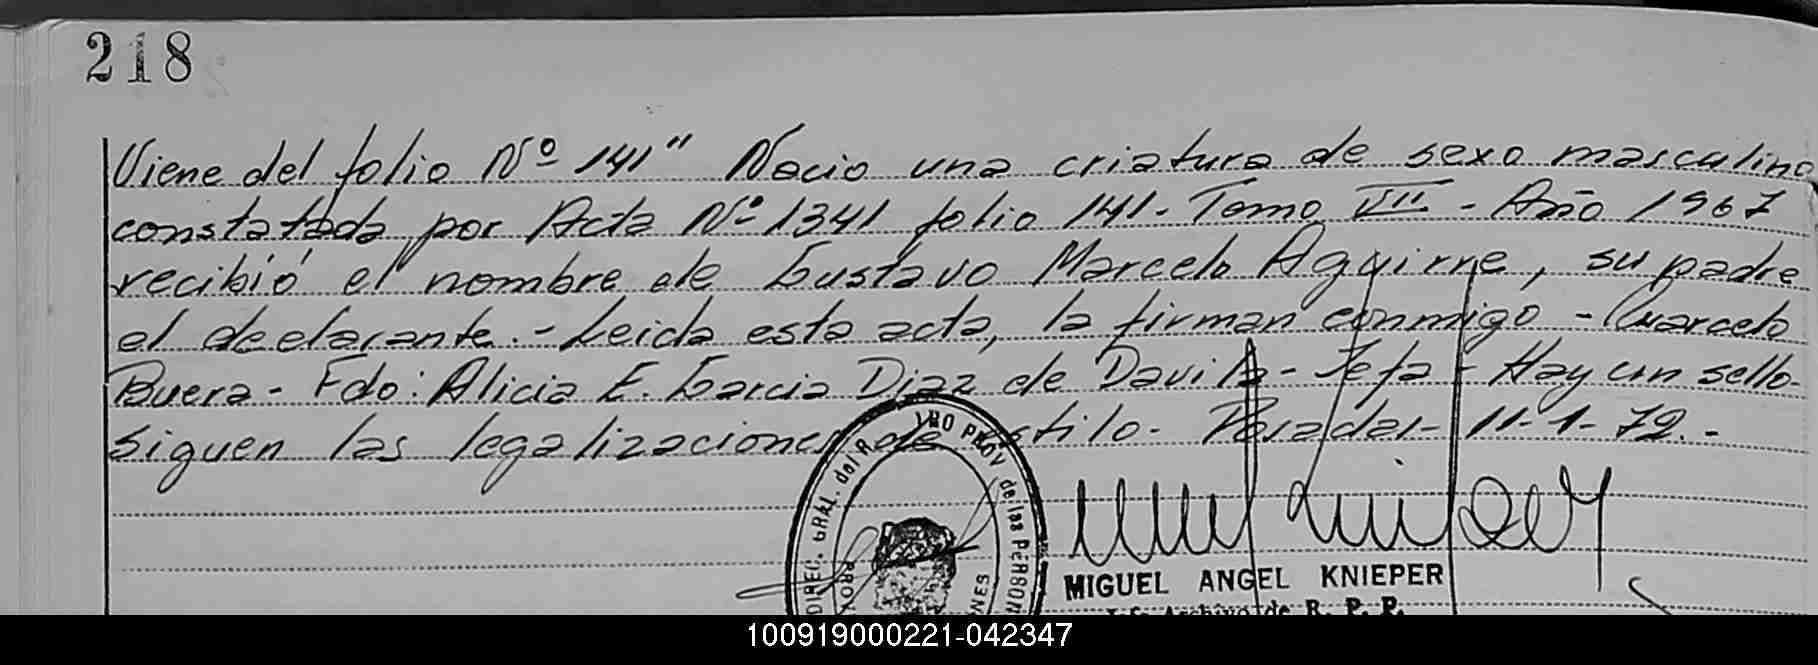 218
Viene del folio Nº 141" Nacio una criatura de sexo masculino
constatada por Acta Nº 1341 folio 141.- Tomo VII.- Año 1967
recibió el nombre de Gustavo Marcelo Aguirre, su padre
el declarante.- Leida esta acta, la firman conmigo - Marcelo
Buera - Fdo: Alicia E. Garcia Diaz de Davila - Jefa - Hay un sello.
siguen las legalizaciones de estilo - Posadas - 11-1-72.-
DIREC. GRAL. del R. PROV de las PERSON
MIGUEL ANGEL KNIEPER
Archivo de R. P. P.
100919000221-042347